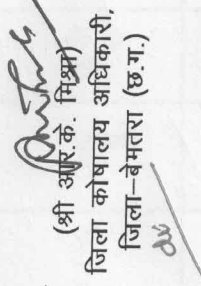 (श्री आर.के. मिश्रा)
जिला कोषालय अधिकारी,
जिला–बेमेतरा (छ.ग.)